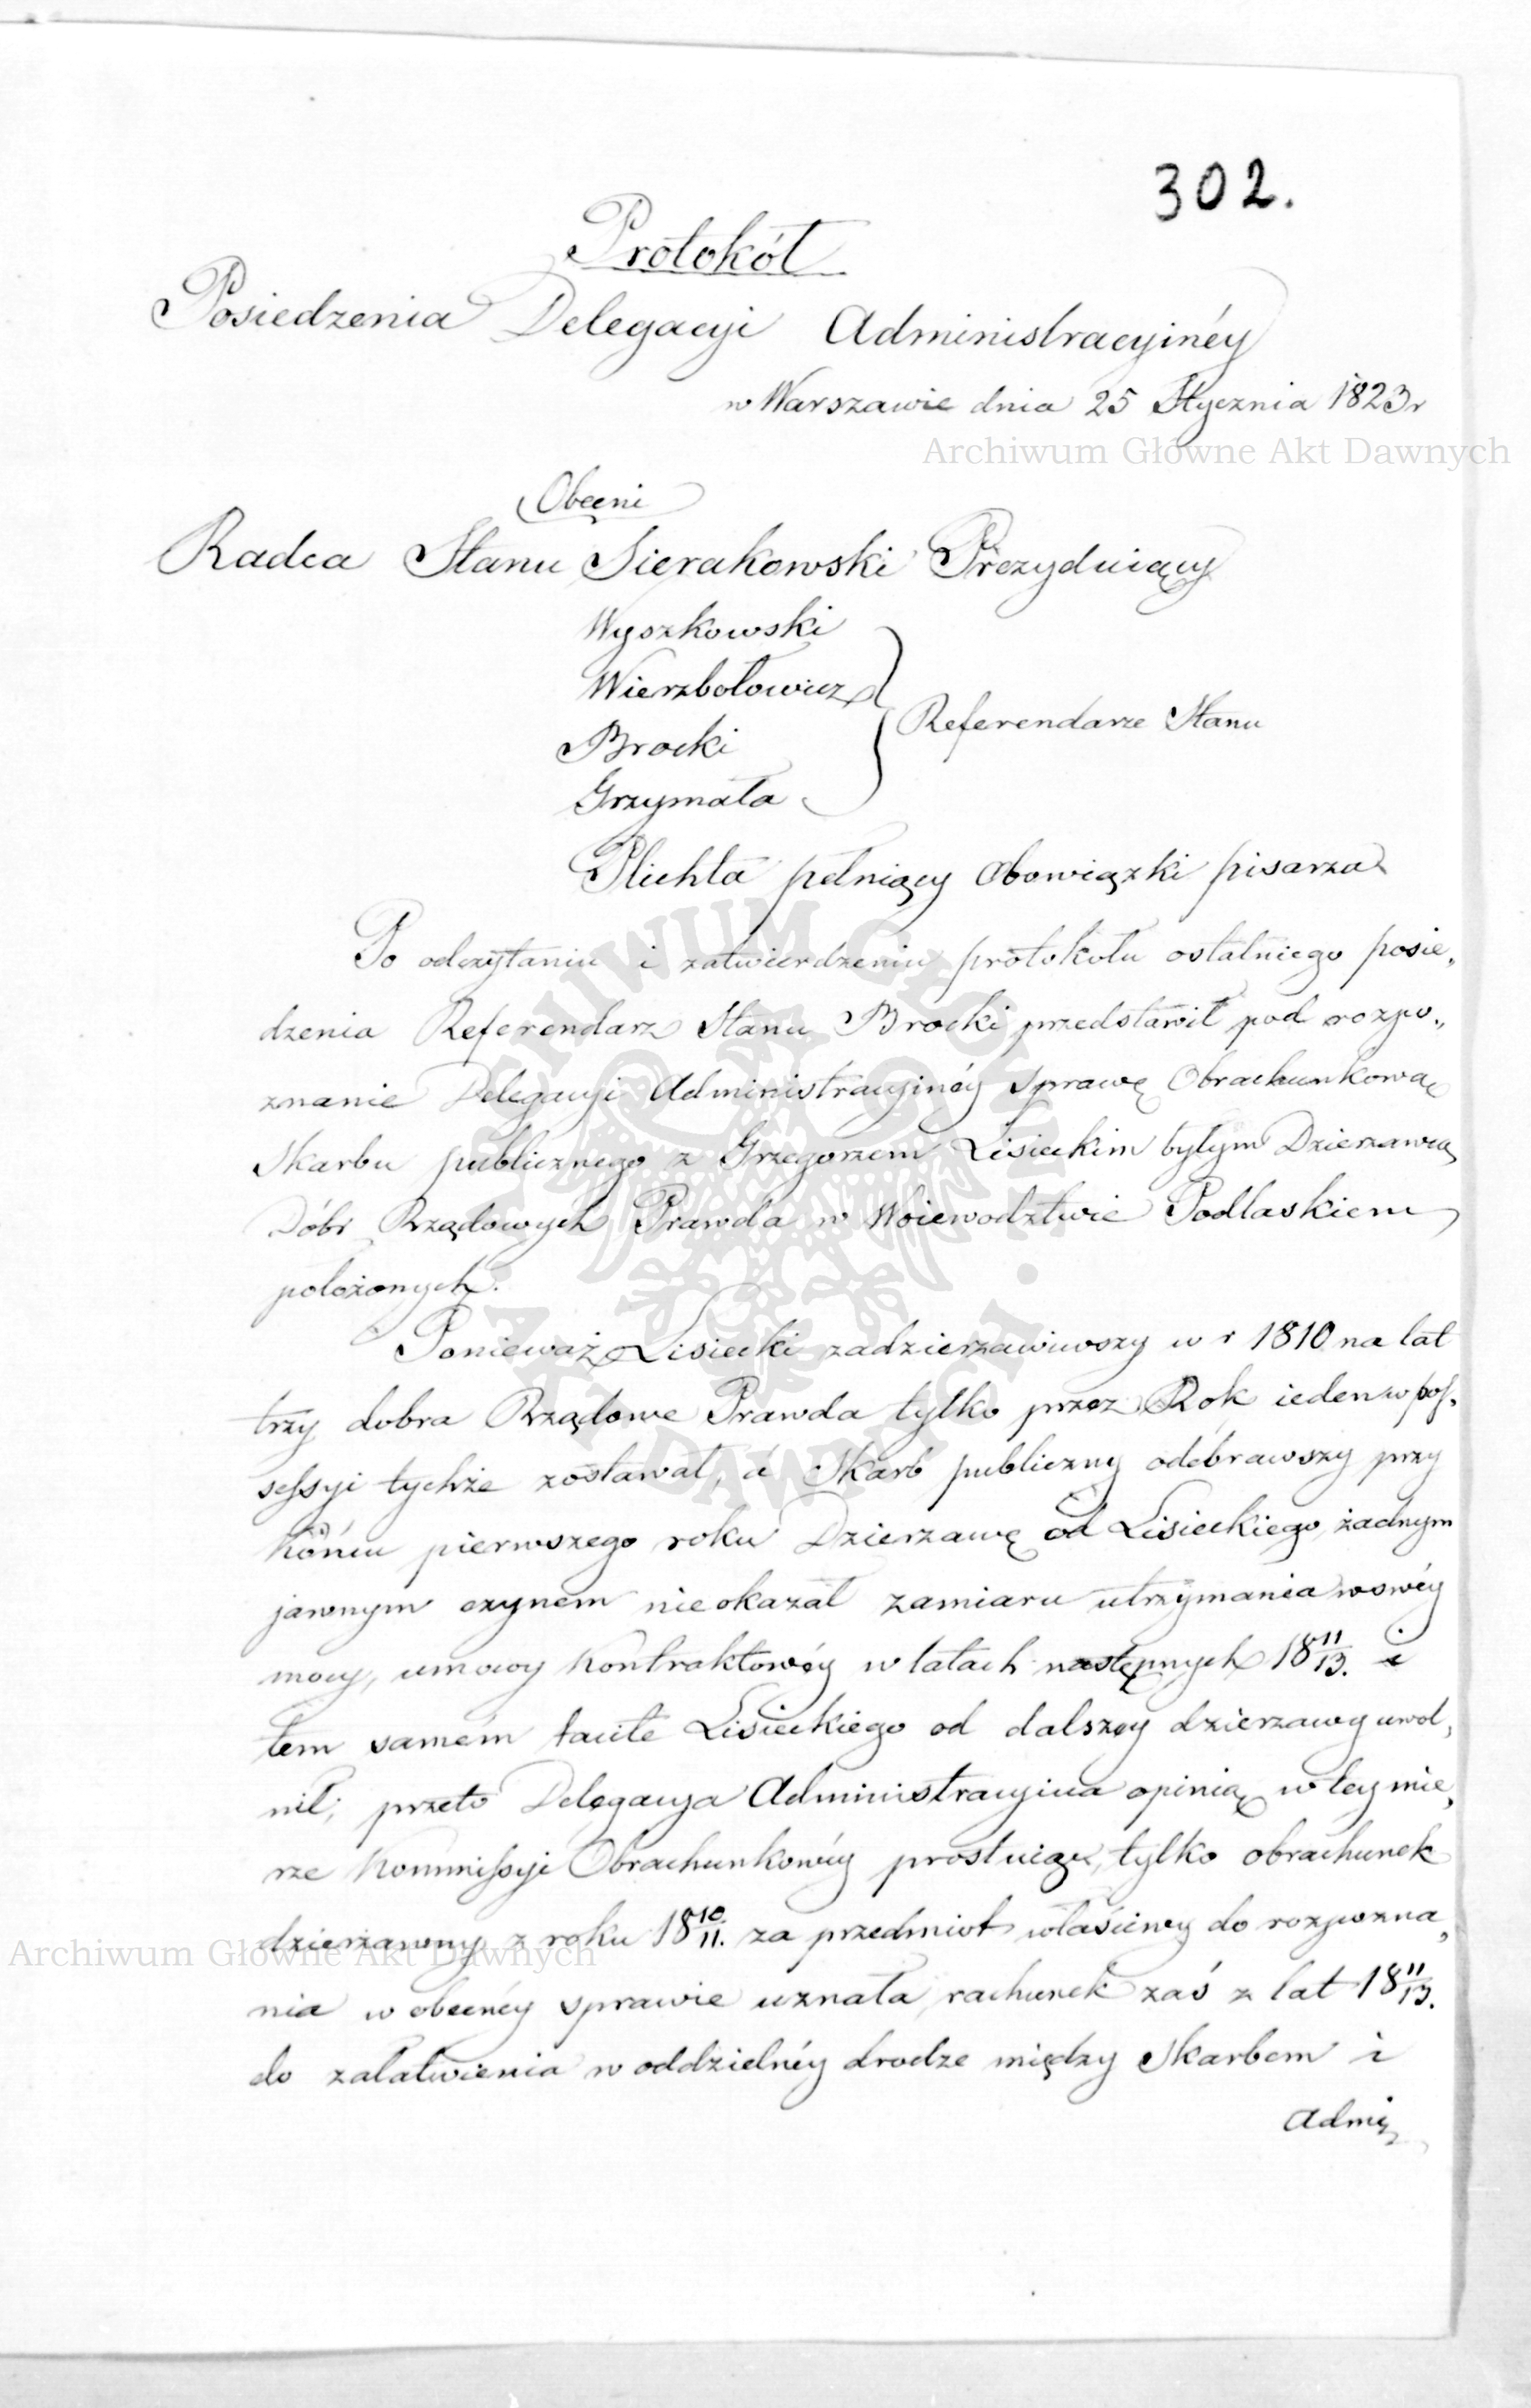 302.
Protokół
Posiedzenia Delegacyi Administracyinéy
w Warszawie dnia 25 Stycznia 1823r
Archiwum Główne Akt Dawnych
Obecni
Radca Stanu Sierakowski Prezyduiący
Wyszkowski
Wierzbołowicz
Brocki
Referendarze Stanu
Grzymała
Plichta pełniący Obowiązki pisarza
Po odczytaniu i zatwierdzeniu protokołu ostatniego posie„
dzenia Referendarz Stanu Brocki przedstawił pod rozpo„
znanie Delegacyi Administracyinéy Sprawę Obrachunkową
Skarbu publicznego z Grzegorzem Lisieckim byłym Dzierzawcą
Dóbr Rządowych Prawda w Woiewodztwie Podlaskiem
położonych.
Ponieważ Lisiecki zadzierzawiwszy w r 1810 na lat
trzy dobra Rządowe Prawda tylko przez Rok ieden w pos„
sessyi tychże zostawał, á Skarb publiczny odebrawszy przy
Końcu pierwszego roku Dzierzawę od Lisieckiego, żadnym
jawnym czynem nie okazał zamiaru utrzymania w swéy
mocy, umowy Kontraktowéy w latach następnych 18 11/13. i
tem samém tacite Lisieckiego od dalszey dzierzawy uwol„
nił; przeto Delegacya Administracyina opinią w tey mie„
rze Kommissyi Obrachunkowéy prostuiąc, tylko obrachunek
dzierzawny z roku 18 10/11. za przedmiot właściwy do rozpozna„
Archiwum Główne Akt Dawnych
nia w obecnéy sprawie uznała, rachunek zaś z lat 18 11/13.
do załatwienia w oddzielnéy drodze między Skarbem i
Admi„
ARCHIWUM GŁÓWNE AKT DAWNYCH